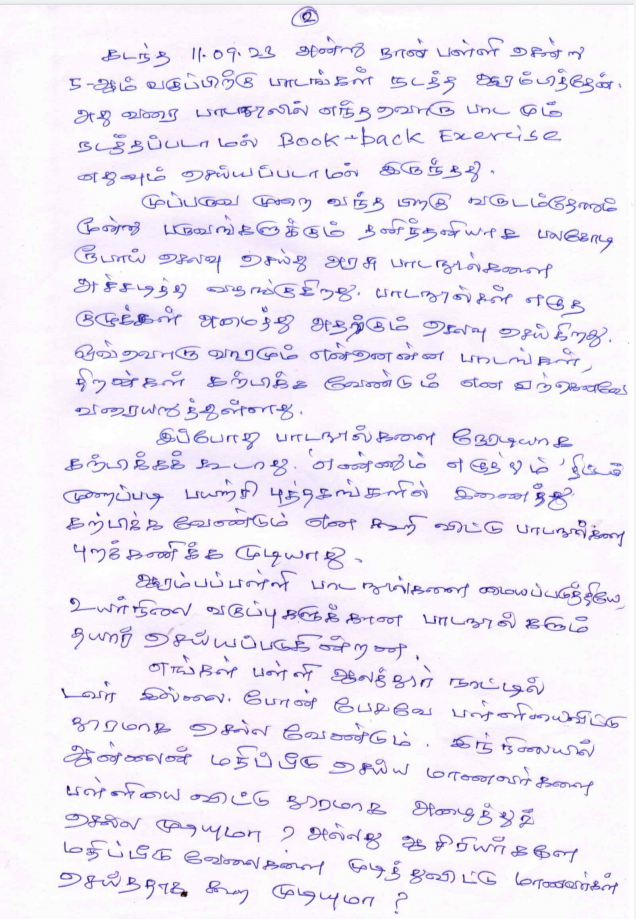 2
கடந்த 11.09.23 அன்று நான் பள்ளி சென்று
5-ஆம் வகுப்பிற்கு பாடங்கள் நடத்த ஆரம்பித்தேன்.
அது வரை பாடநூலில் எந்தவொரு பாடமும்
நடத்தப்படாமல் Book-back Exercise
எதுவும் செய்யப்படாமல் இருந்தது.
முப்பருவ முறை வந்த பிறகு வருடம்தோறும்
மூன்று பருவங்களுக்கும் தனித்தனியாக பலகோடி
ரூபாய் செலவு செய்து அரசு பாடநூல்களை
அச்சடித்து வழங்குகிறது. பாடநூல்கள் எழுத
குழுக்கள் அமைத்து அதற்கும் செலவு செய்கிறது.
ஒவ்வொரு வாரமும் என்னென்ன பாடங்கள்,
திறன்கள் கற்பிக்க வேண்டும் என ஏற்கெனவே
வரையறுத்துள்ளது.
இப்போது பாடநூல்களை நேரடியாக
கற்பிக்கக் கூடாது. 'எண்ணும் எழுத்தும்' திட்டம்
முறைப்படி பயிற்சி புத்தகங்களில் இணைத்து
கற்பிக்க வேண்டும் என கூறி விட்டு பாடநூல்களை
புறக்கணிக்க முடியாது.
ஆரம்பப்பள்ளி பாட நூல்களை மையப்படுத்தியே,
உயர்நிலை வகுப்புகளுக்கான பாடநூல்களும்
தயார் செய்யப்படுகின்றன.
எங்கள் பள்ளி ஆலத்தூர் நாட்டில்
டவர் இல்லை. போன் பேசவே பள்ளியைவிட்டு
தூரமாக செல்ல வேண்டும். இந்நிலையில்
ஆன்லைன் மதிப்பீடு செய்ய மாணவர்களை
பள்ளியை விட்டு தூரமாக அழைத்துச்
செல்ல முடியுமா? அல்லது ஆசிரியர்களே
மதிப்பீடு வேலைகளை முடித்துவிட்டு மாணவர்கள்
செய்ததாக கூற முடியுமா?